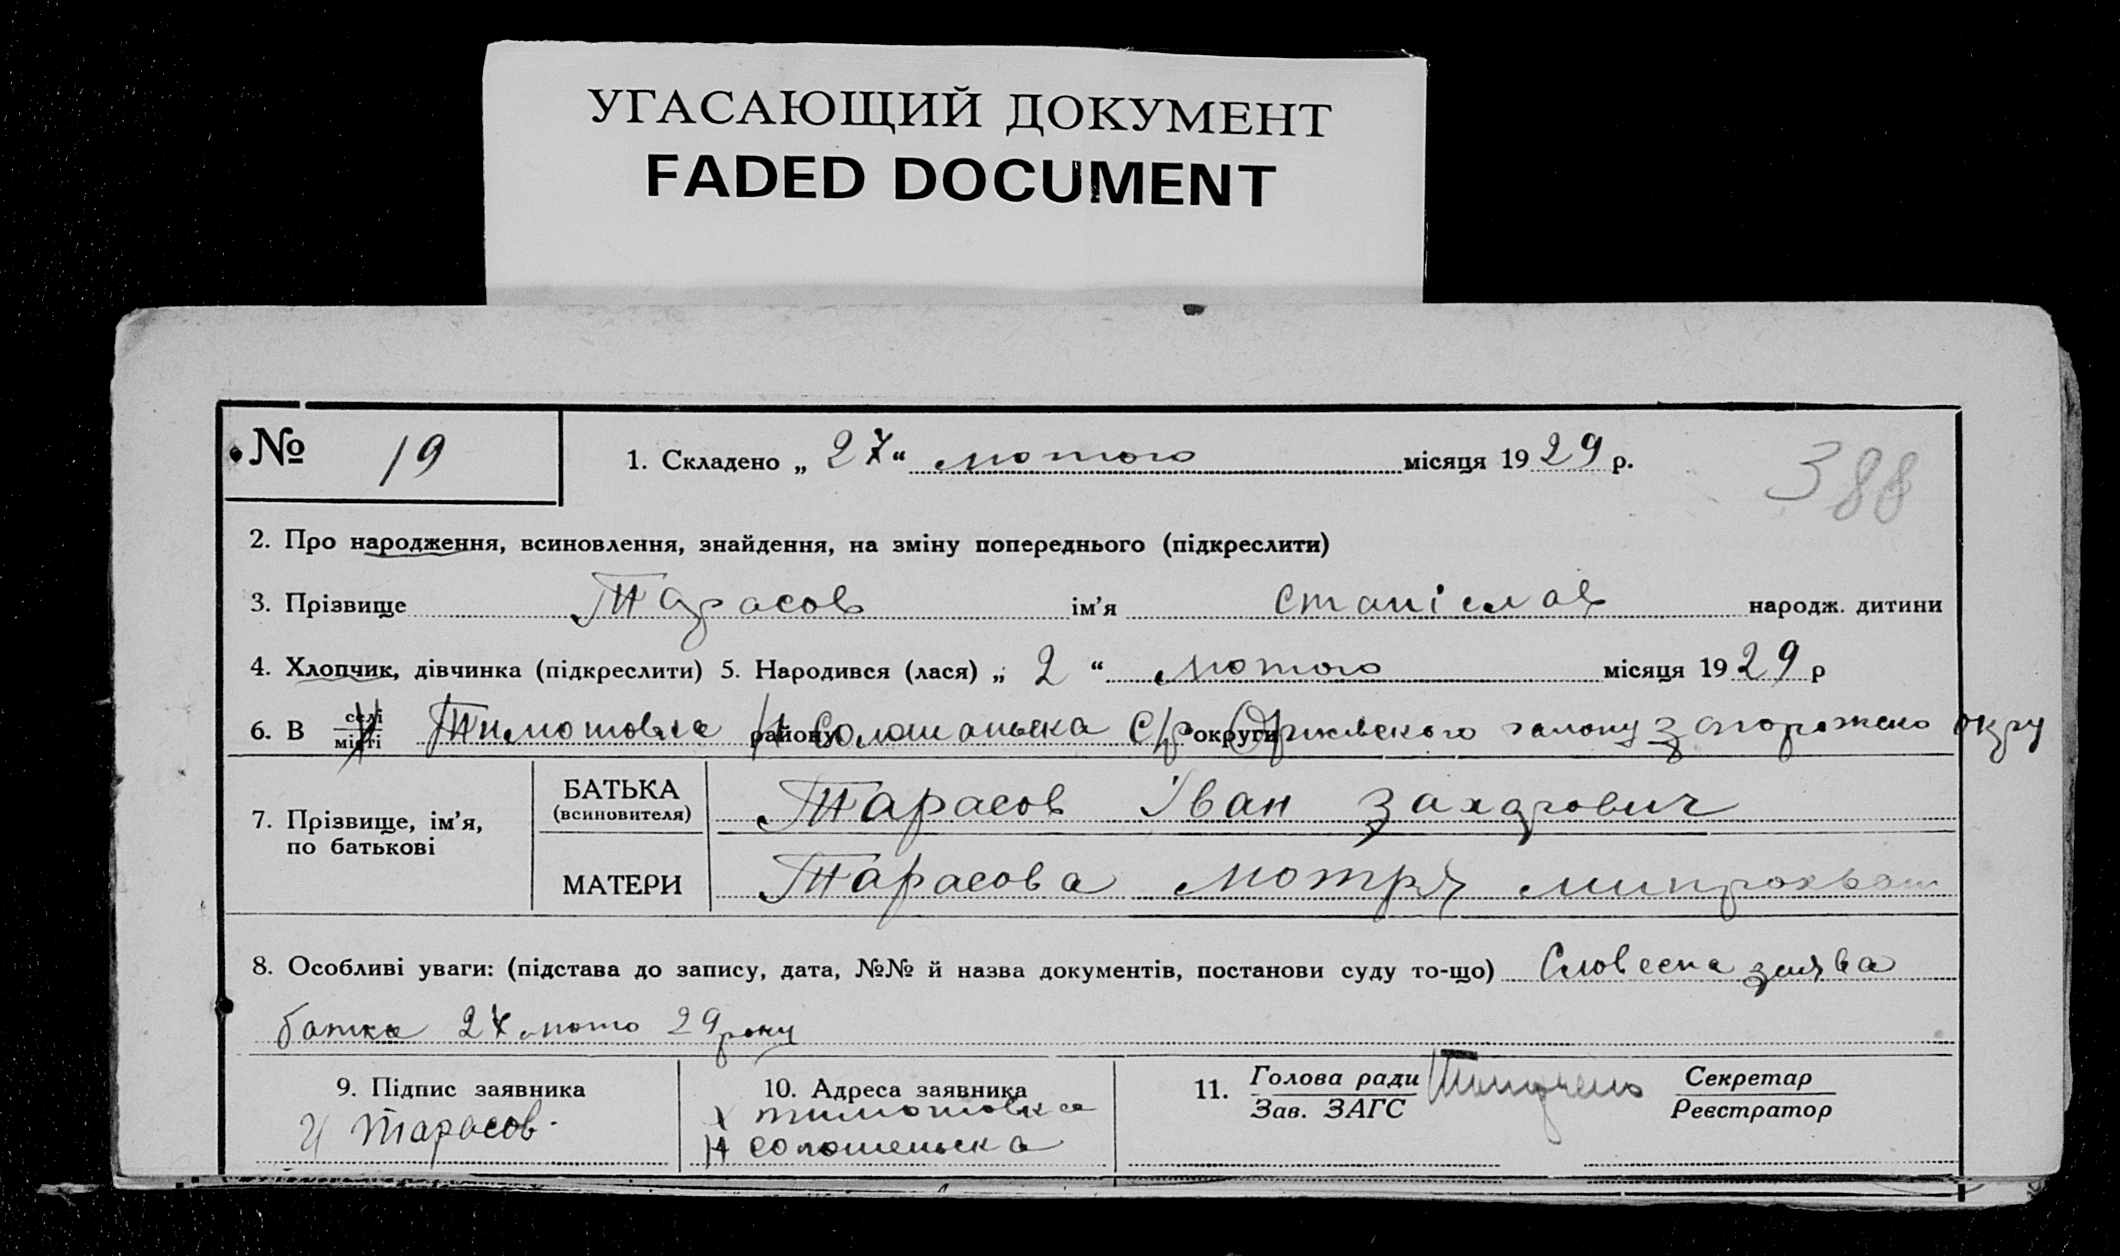 УГАСАЮЩИЙ ДОКУМЕНТ
FADED DOCUMENT
№ 19
1. Складено „ 27 “ лютого місяця 1929 р.
388
2. Про народження, всиновлення, знайдення, на зміну попереднього (підкреслити)
3. Прізвище Тарасов ім’я Станіслав народж. дитини
4. Хлопчик, дівчинка (підкреслити) 5. Народився (лася) „ 2 “ лютого місяця 1929 р
6. В селі місті Тимотовка району Н Солошанська С/р округи району запорожско окру
7. Прізвище, ім’я, по батькові
БАТЬКА (всиновителя) Тарасов Іван Захарович
МАТЕРИ Тарасова Мотря
8. Особливі уваги: (підстава до запису, дата, №№ й назва документів, постанови суду то-що) Словесна заява
батька 27 люто 29 року
9. Підпис заявника
И Тарасов.
10. Адреса заявника
х Тимотовка
Н Солошенська
11. Голова ради
Зав. ЗАГС
Секретар
Реєстратор